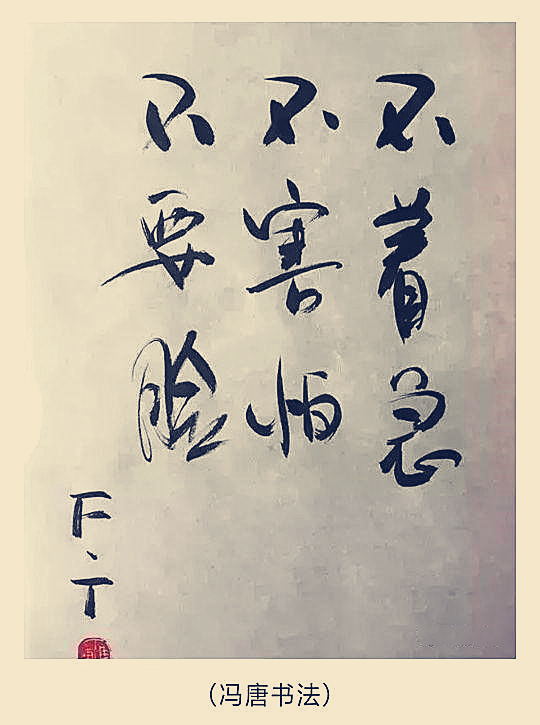 不着急
不害怕
不要脸
F、T
（冯唐书法）